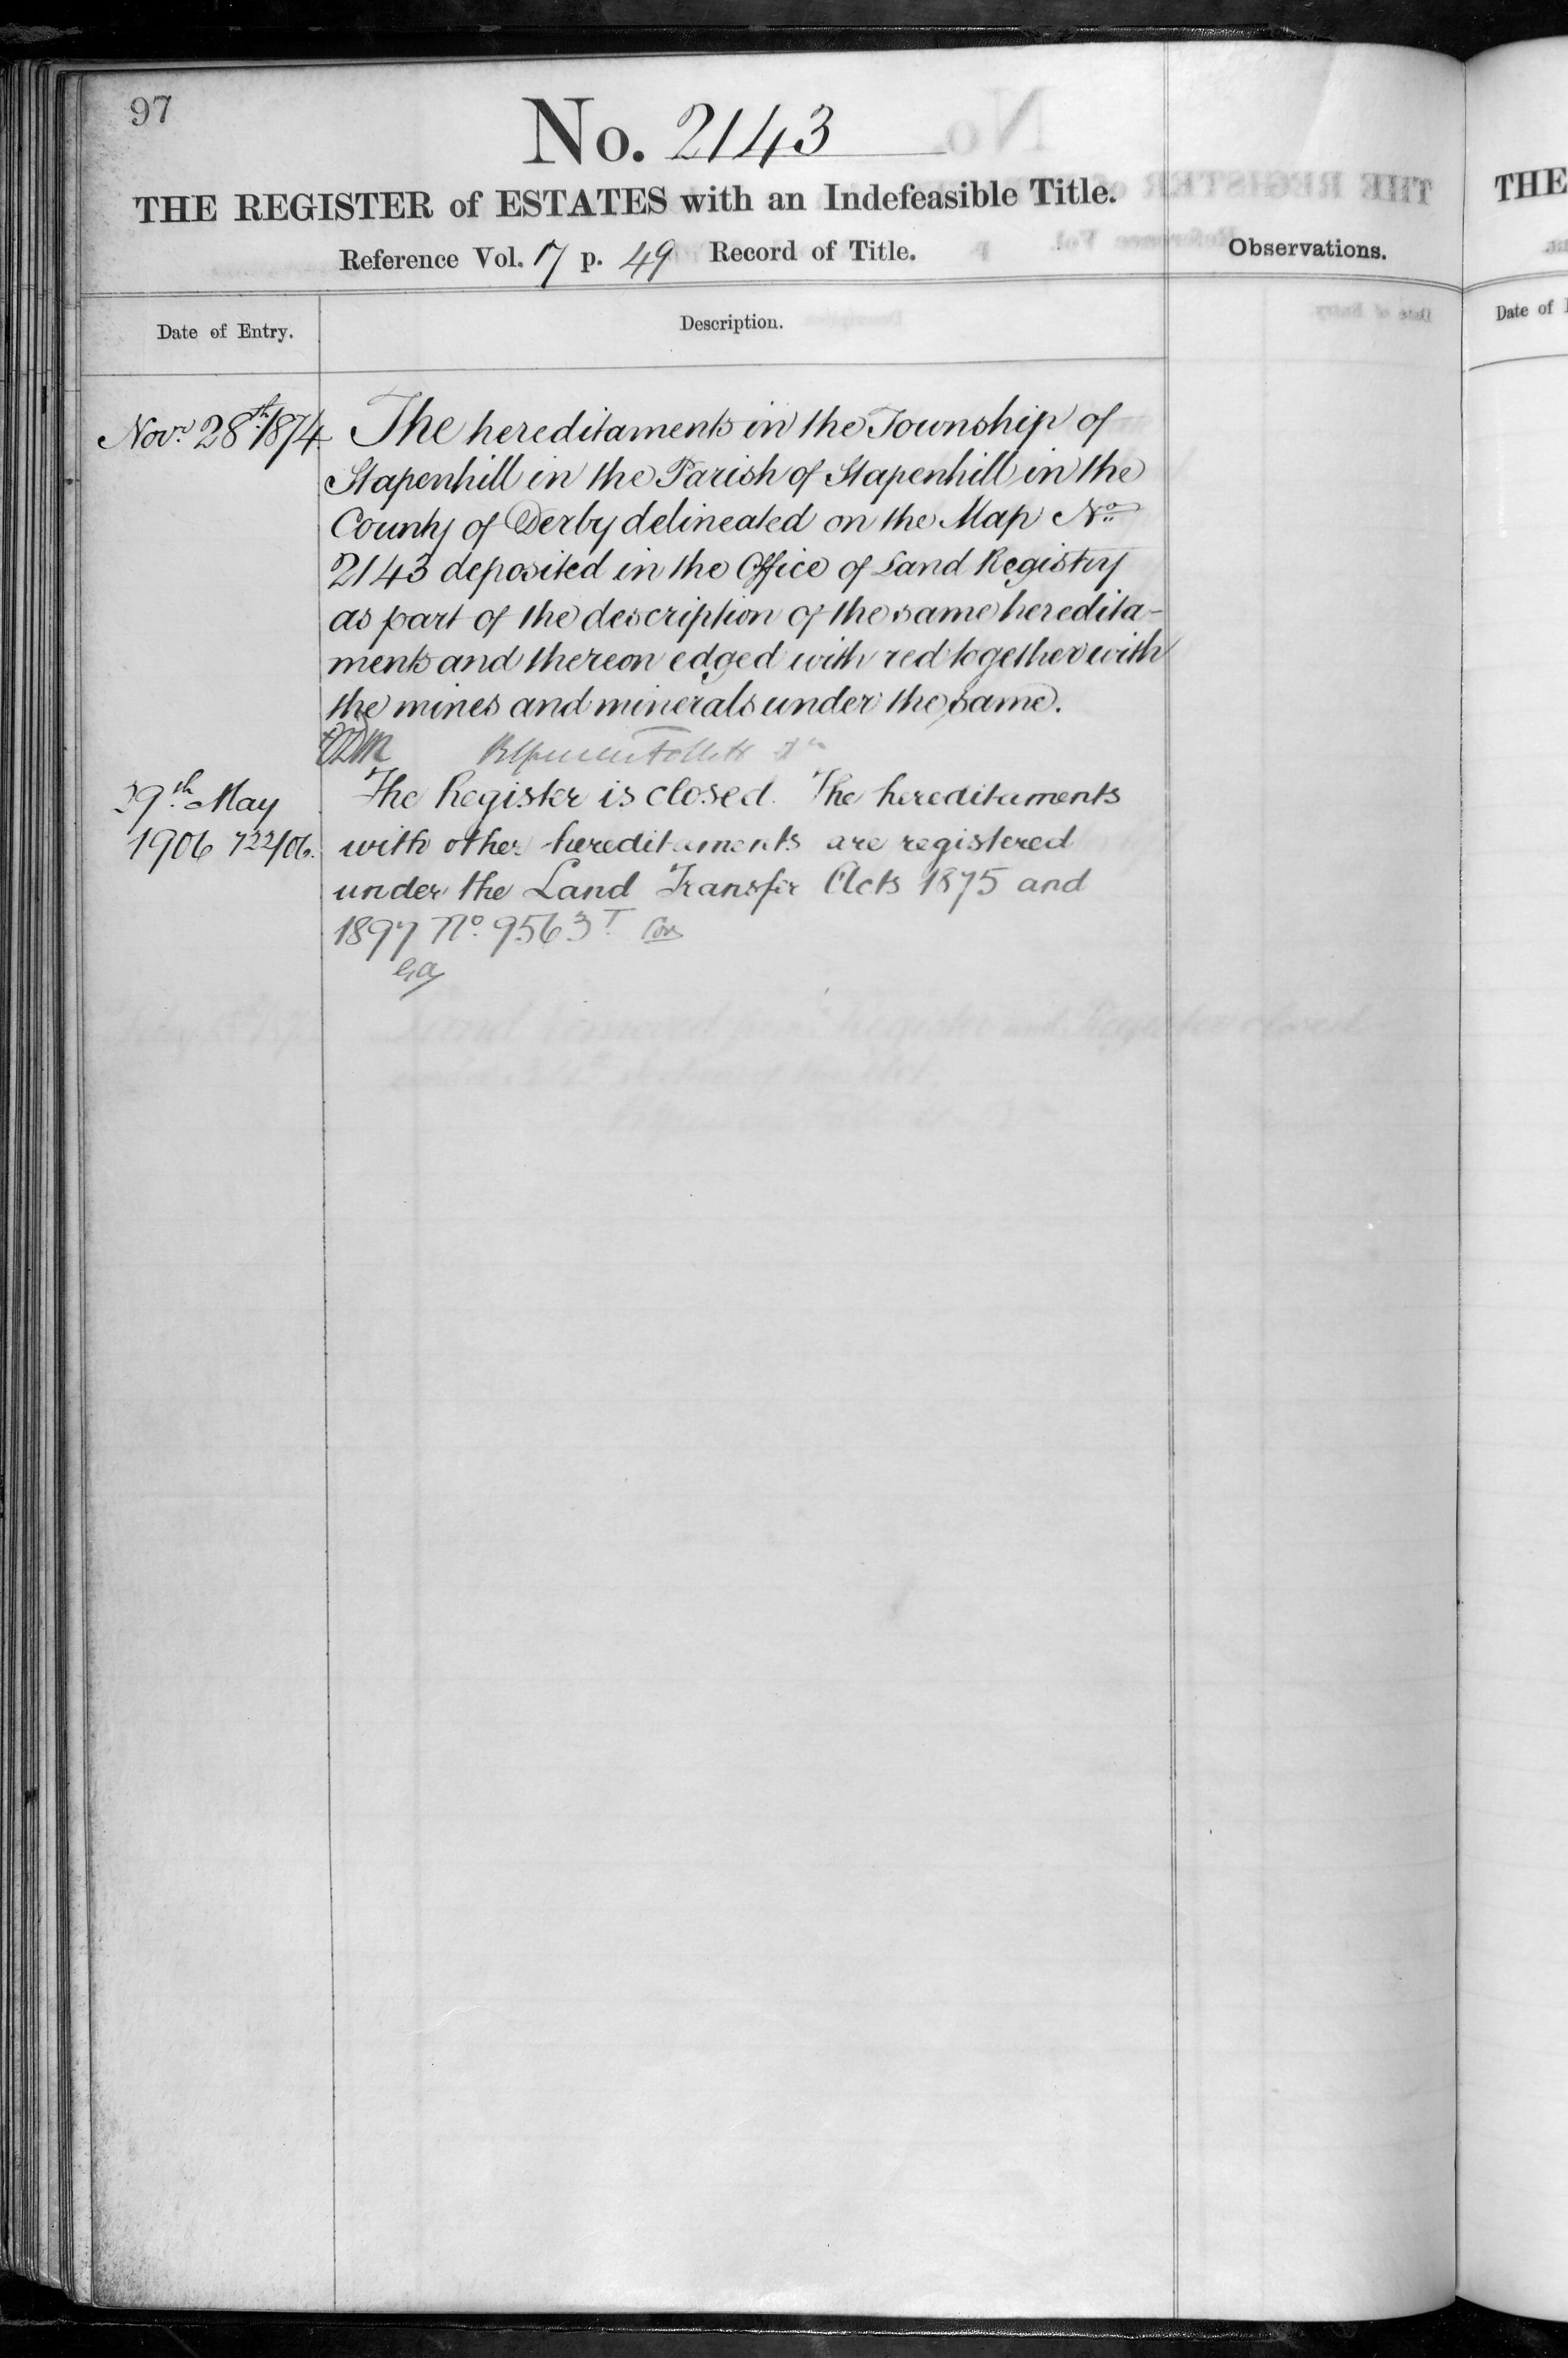 97
No. 2143
THE REGISTER of ESTATES with an Indefeasible Title.
Reference Vol. 17 p. 49 Record of Title.
Observations.
Date of Entry.
Description.
Novr. 28th. 1874.
The hereditaments in the Township of
Stapenhill in the Parish of Stapenhill in the
County of Derby delineated on the Map No.
2143 deposited in the Office of Land Registry
as part of the description of the same heredita-
ments and thereon edged with red together with
the mines and minerals under the same.
29th. May
1906 722/06.
The Register is closed. The hereditaments
with other hereditaments are registered
under the Land Transfer Acts 1875 and
1897 No. 9563
THE
Date of